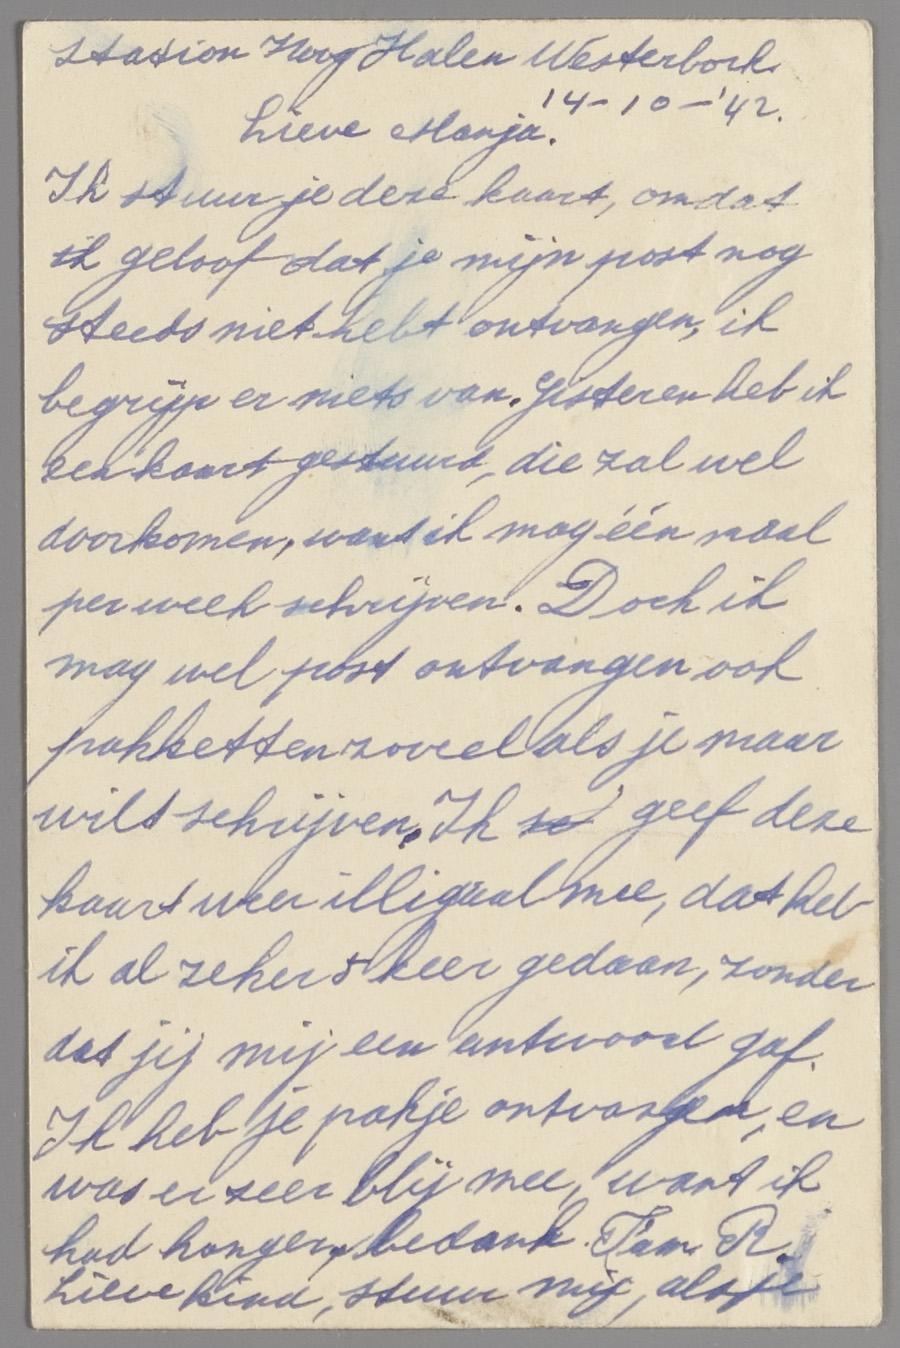 Station Hoog Halen Westerbork.
14-10-'42.
Lieve Manja.
Ik stuur je deze kaart, omdat
ik geloof dat je mijn post nog
steeds niet hebt ontvangen, ik
begrijp er niets van. Gisteren heb ik
een kaart gestuurd, die zal wel
doorkomen, want ik mag één maal
per week schrijven. Doch ik
mag wel post ontvangen ook
pakketten zoveel als je maar
wilt schrijven. Ik geef deze
kaart weer illigaal mee, dat heb
ik al zeker 5 keer gedaan, zonder
dat jij mij een antwoord gaf.
Ik heb je pakje ontvangen, en
was er zeer blij mee, want ik
had honger, bedank Fam. R.
Lieve kind, stuur mij, als je